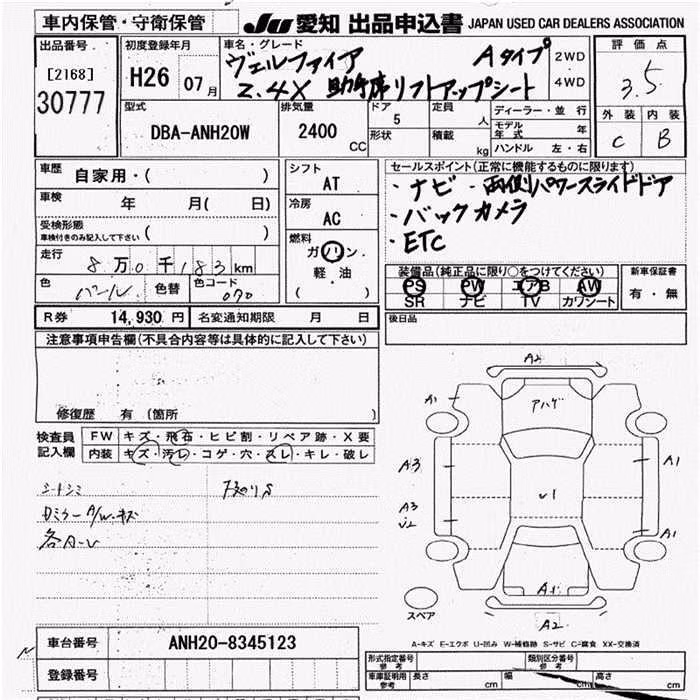 車内保管・守衛保管
JU 愛知 出品申込書 JAPAN USED CAR DEALERS ASSOCIATION
出品番号
[2168]
30777
初度登録年月
H26 07月
車名・グレード
ヴェルファイア Aタイプ
2.4X 助手席リフトアップシート
2WD
4WD
評価点
3.5
外装 内装
C B
型式
DBA-ANH20W
排気量
2400
CC
ドア
5
形状
定員
人
積載
kg
ディーラー・並行
モデル年式 年
ハンドル 左・右
車歴 自家用・( )
車検 年 月( 日)
受検形態
車検付きのみ記入して下さい ( )
走行 8万0千183km
色 パール 色替 色コード 070
シフト
AT
冷房
AC
燃料
ガソリン
軽・油
( )
セールスポイント(正常に機能するものに限ります)
・ナビ・両側パワースライドドア
・バックカメラ
・ETC
装備品(純正品に限り○をつけてください)
PS PW エアB AW
SR ナビ TV カワシート
新車保証書
有・無
R券 14,930円 名変通知期限 月 日
後日品
注意事項申告欄(不具合内容等は具体的に記入して下さい)
修復歴 有 (箇所 )
検査員記入欄
FW キズ・飛石・ヒビ割・リペア跡・X要
内装 キズ・汚レ・コゲ・穴・スレ・キレ・破レ
シートシミ
下廻りS
各A-U
A2
A1
アハゲ
A3
A1
U1
A3
A1
A1
スペア
A2
A-キズ E-エクボ U-凹み W-補修跡 S-サビ C-腐食 XX-交換済
車台番号 ANH20-8345123
登録番号
形式指定番号
参考
類別区分番号
参考
車庫証明用
参考
長さ cm 幅 cm 高さ cm